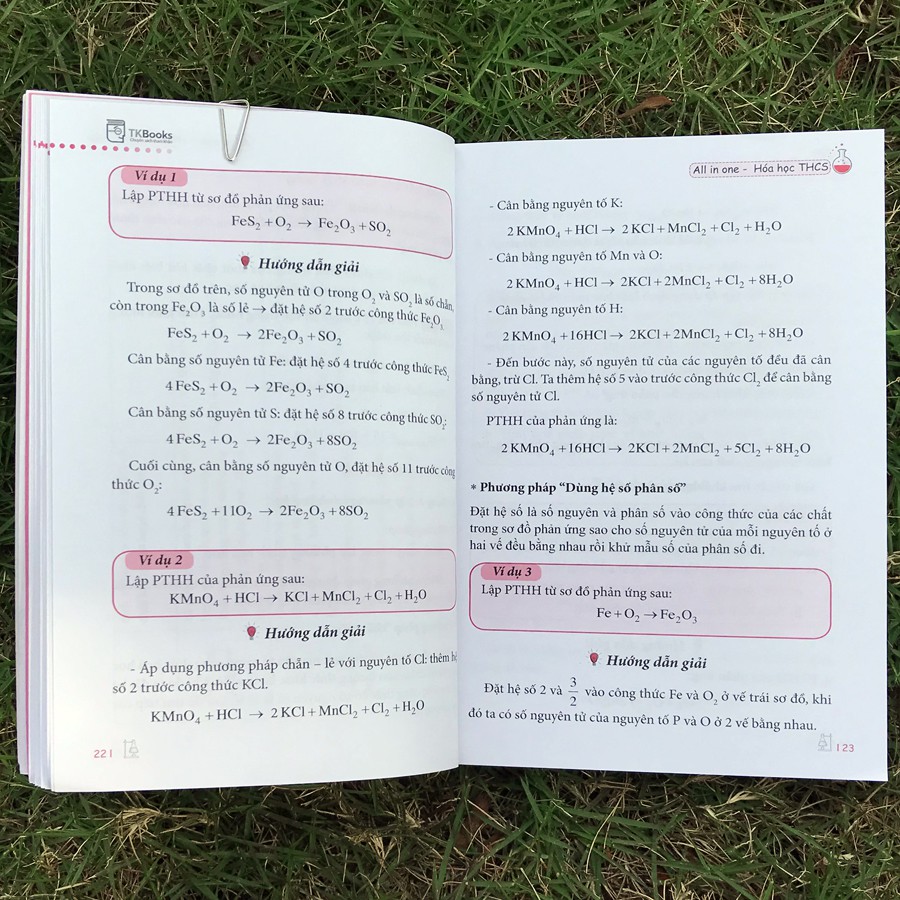 TKBooks
Chuyên sách tham khảo
Ví dụ 1
Lập PTHH từ sơ đồ phản ứng sau:
FeS₂ + O₂ → Fe₂O₃ + SO₂
Hướng dẫn giải
Trong sơ đồ trên, số nguyên tử O trong O₂ và SO₂ là số chẵn,
còn trong Fe₂O₃ là số lẻ → đặt hệ số 2 trước công thức Fe₂O₃
FeS₂ + O₂ → 2Fe₂O₃ + SO₂
Cân bằng số nguyên tử Fe: đặt hệ số 4 trước công thức FeS₂
4 FeS₂ + O₂ → 2Fe₂O₃ + SO₂
Cân bằng số nguyên tử S: đặt hệ số 8 trước công thức SO₂:
4 FeS₂ + O₂ → 2Fe₂O₃ + 8SO₂
Cuối cùng, cân bằng số nguyên tử O, đặt hệ số 11 trước công
thức O₂:
4 FeS₂ + 11O₂ → 2Fe₂O₃ + 8SO₂
Ví dụ 2
Lập PTHH của phản ứng sau:
KMnO₄ + HCl → KCl + MnCl₂ + Cl₂ + H₂O
Hướng dẫn giải
- Áp dụng phương pháp chẵn – lẻ với nguyên tố Cl: thêm
số 2 trước công thức KCl.
KMnO₄ + HCl → 2 KCl + MnCl₂ + Cl₂ + H₂O
221
All in one - Hóa học THCS
- Cân bằng nguyên tố K:
2 KMnO₄ + HCl → 2 KCl + MnCl₂ + Cl₂ + H₂O
- Cân bằng nguyên tố Mn và O:
2 KMnO₄ + HCl → 2KCl + 2MnCl₂ + Cl₂ + 8H₂O
- Cân bằng nguyên tố H:
2 KMnO₄ + 16HCl → 2KCl + 2MnCl₂ + Cl₂ + 8H₂O
- Đến bước này, số nguyên tử của các nguyên tố đều đã cân
bằng, trừ Cl. Ta thêm hệ số 5 vào trước công thức Cl₂ để cân bằng
số nguyên tử Cl.
PTHH của phản ứng là:
2 KMnO₄ + 16HCl → 2KCl + 2MnCl₂ + 5Cl₂ + 8H₂O
* Phương pháp “Dùng hệ số phân số”
Đặt hệ số là số nguyên và phân số vào công thức của các chất
trong sơ đồ phản ứng sao cho số nguyên tử của mỗi nguyên tố ở
hai vế đều bằng nhau rồi khử mẫu số của phân số đi.
Ví dụ 3
Lập PTHH từ sơ đồ phản ứng sau:
Fe + O₂ → Fe₂O₃
Hướng dẫn giải
Đặt hệ số 2 và 3/2 vào công thức Fe và O₂ ở vế trái sơ đồ, khi
đó ta có số nguyên tử của nguyên tố P và O ở 2 vế bằng nhau.
123